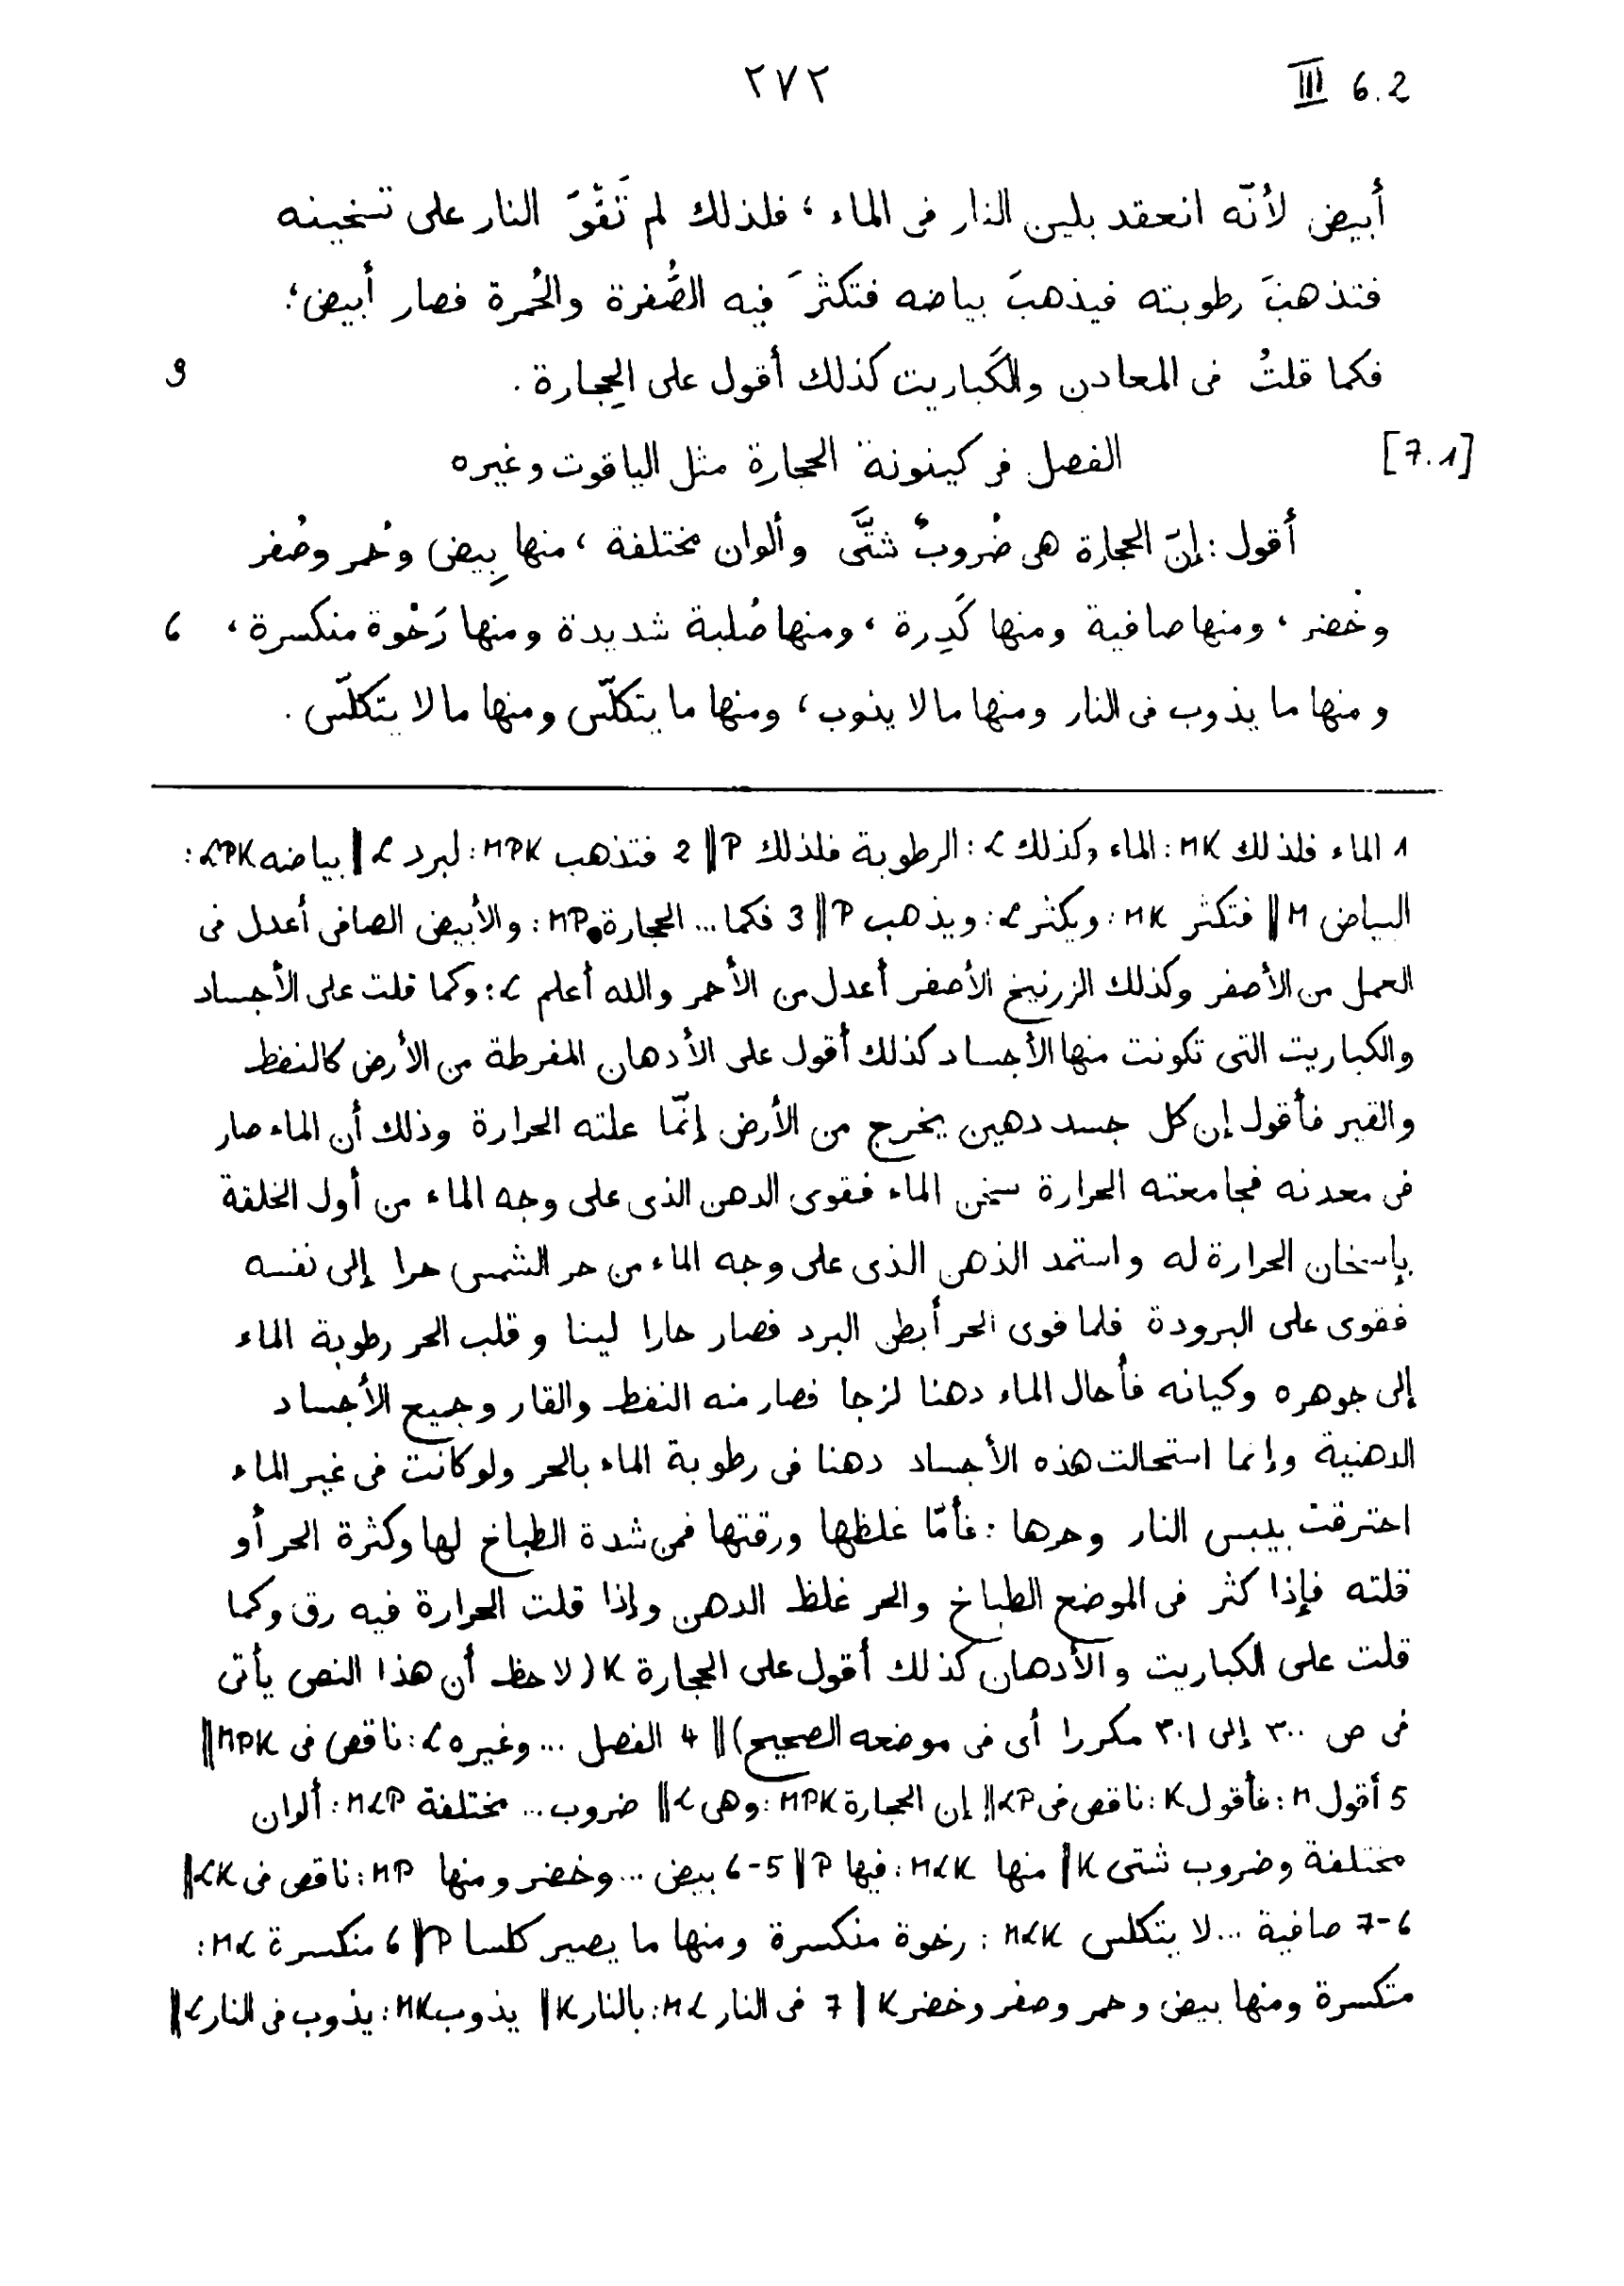 ٢٧٢ III 6.2
أبيض لأنّه انعقد بلين النار فى الماء ، فلذلك لم تَقْوَ النار على تسخينه
فتذهبَ رطوبته فيذهبَ بياضه فتكثرَ فيه الصُّفرة والحُمرة فصار أبيض ؛
فكما قلتُ فى المعادن والكَباريت كذلك أقول على الحِجارة . 9
[7.1] الفصل فى كينونة الحجارة مثل الياقوت وغيره
أقول : إنّ الحجارة هى ضُروبٌ شتَّى وألوان مختلفة ، منها بِيض وحُمر وصُفر
وخُضر ، ومنها صافية ومنها كَدِرة ، ومنها صُلبة شديدة ومنها رَخْوة منكسرة ، 6
ومنها ما يذوب فى النار ومنها ما لا يذوب ، ومنها ما يتكلّس ومنها ما لا يتكلّس .
1 الماء فلذلك MK : الماء وكذلك L : الرطوبة فلذلك P || 2 فتذهب MPK : لبرد L || بياضه LPK :
البياض M || فتكثر MK : ويكثر L : ويذهب P || 3 فكما ... الحجارة MP : والأبيض الصافى أعدل فى
العمل من الأصفر وكذلك الزرنيخ الأصفر أعدل من الأحمر والله أعلم L : وكما قلت على الأجساد
والكباريت التى تكونت منها الأجساد كذلك أقول على الأدهان المفرطة من الأرض كالنفط
والقير فأقول إن كل جسد دهين يخرج من الأرض إنّما علته الحرارة وذلك أن الماء صار
فى معدنه فجامعته الحرارة سخن الماء فقوى الدهن الذى على وجه الماء من أول الخلقة
بإسخان الحرارة له واستمد الذهن الذى على وجه الماء من حر الشمس حرا إلى نفسه
فقوى على البرودة فلما قوى الحر أبطن البرد فصار حارا لينا وقلب الحر رطوبة الماء
إلى جوهره وكيانه فأحال الماء دهنا لزجا فصار منه النفط والقار وجميع الأجساد
الدهنية وإنما استحالت هذه الأجساد دهنا فى رطوبة الماء بالحر ولو كانت فى غير الماء
احترقت بيبس النار وحرها : فأمّا غلظها ورقتها فمن شدة الطباخ لها وكثرة الحر أو
قلته فإذا كثر فى الموضع الطباخ والحر غلظ الدهن وإذا قلت الحرارة فيه رق وكما
قلت على الكباريت والأدهان كذلك أقول على الحجارة K (لاحظ أن هذا النص يأتى
فى ص ٣٠٠ إلى ٣٠١ مكررا أى فى موضعه الصحيح) || 4 الفصل ... وغيره L : ناقص فى MPK ||
5 أقول M : فأقول K : ناقص فى LP || إن الحجارة MPK : وهى L || ضروب ... مختلفة MLP : ألوان
مختلفة وضروب شتى K || منها MLK : فيها P || 5-6 بيض ... وخضر ومنها MP : ناقص فى LK ||
6-7 صافية ... لا يتكلس MLK : رخوة منكسرة ومنها ما يصير كلسا P || 6 منكسرة ML :
متكسرة ومنها بيض وحمر وصفر وخضر K || 7 فى النار ML : بالنار K || يذوب MK : يذوب فى النار L ||